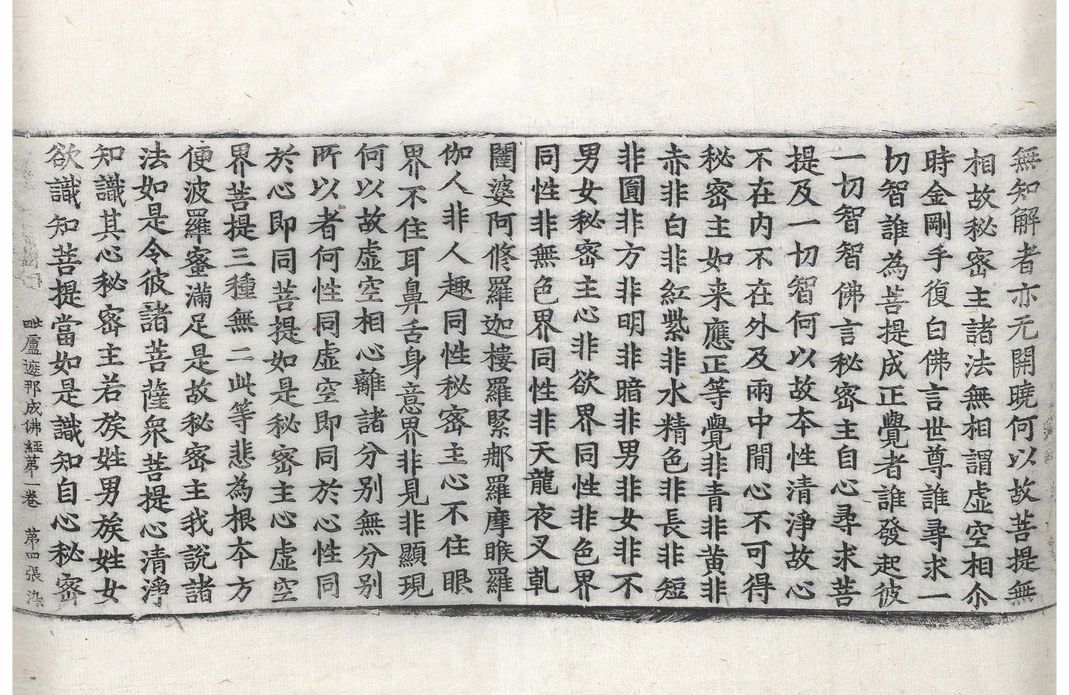 無知解者亦无開曉何以故菩提無
相故秘密主諸法無相謂虛空相尒
時金剛手復白佛言世尊誰尋求一
切智誰為菩提成正覺者誰發起彼
一切智智佛言秘密主自心尋求菩
提及一切智何以故本性清淨故心
不在內不在外及兩中閒心不可得
秘密主如來應正等覺非青非黃非
赤非白非紅紫非水精色非長非短
非圓非方非明非暗非男非女非不
男女秘密主心非欲界同性非色界
同性非無色界同性非天龍夜叉乹
闥婆阿脩羅迦樓羅緊那羅摩睺羅
伽人非人趣同性秘密主心不住眼
界不住耳鼻舌身意界非見非顯現
何以故虛空相心離諸分別無分別
所以者何性同虛空即同於心性同
於心即同菩提如是秘密主心虛空
界菩提三種無二此等悲為根本方
便波羅蜜滿足是故秘密主我說諸
法如是令彼諸菩薩衆菩提心清淨
知識其心秘密主若族姓男族姓女
毗盧遮那成佛經第一卷 第四張 染
欲識知菩提當如是識知自心秘密